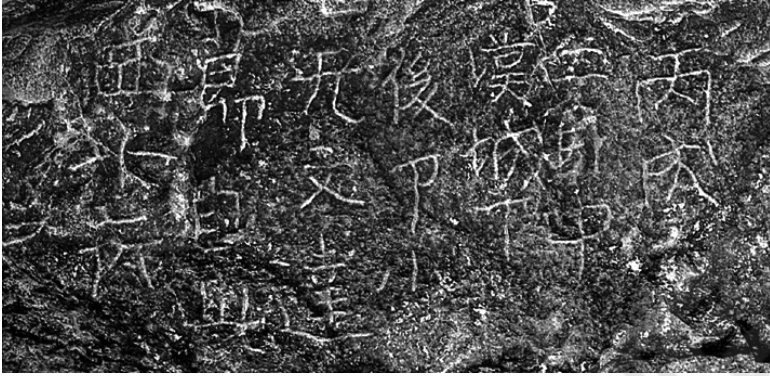 丙戌十
二月中
漢城下
後卩小
兄文達
節自此
西北行